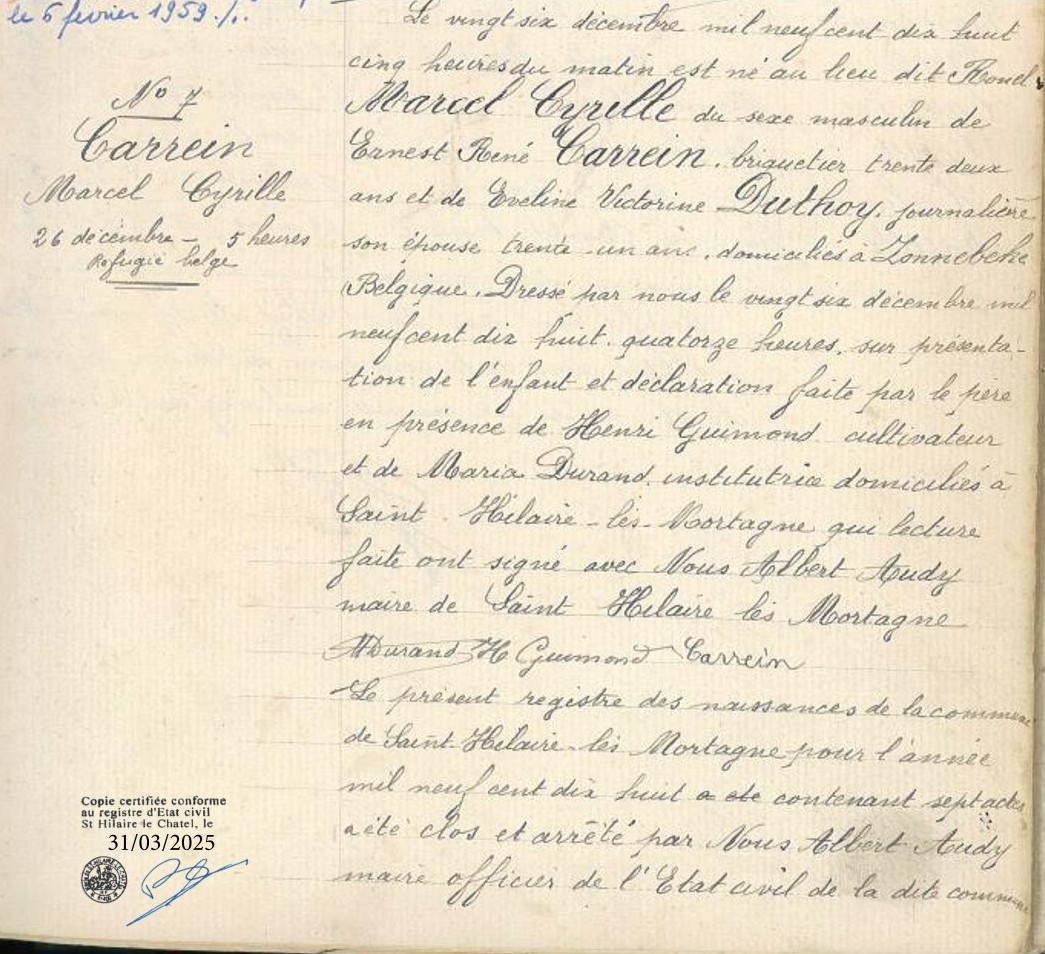 le 6 fevrier 1959 ./.
N° 7
Carrein
Marcel Cyrille
26 décembre – 5 heures
Refugié belge
Le vingt six décembre mil neuf cent dix huit
cinq heures du matin est né au lieu dit
Marcel Cyrille du sexe masculin de
Ernest René Carrein, briquetier trente deux
ans et de Eveline Victorine Duthoy, journalière
son épouse trente un ans, domiciliés à Zonnebeke
Belgique. Dressé par nous le vingt six décembre mil
neuf cent dix huit, quatorze heures, sur présenta-
tion de l'enfant et déclaration faite par le père
en présence de Henri Guimond cultivateur
et de Maria Durand, institutrice domiciliés à
Saint-Hilaire-lès-Mortagne qui lecture
faite ont signé avec Nous Albert Audy
maire de Saint Hilaire lès Mortagne
MDurand H Guimond Carrein
Le présent registre des naissances de la commune
de Saint-Hilaire-lès Mortagne pour l'année
mil neuf cent dix huit a ete contenant sept actes
a été clos et arrêté par Nous Albert Audy
maire officier de l'Etat civil de la dite commune
Copie certifiée conforme
au registre d'Etat civil
St Hilaire le Chatel, le
31/03/2025